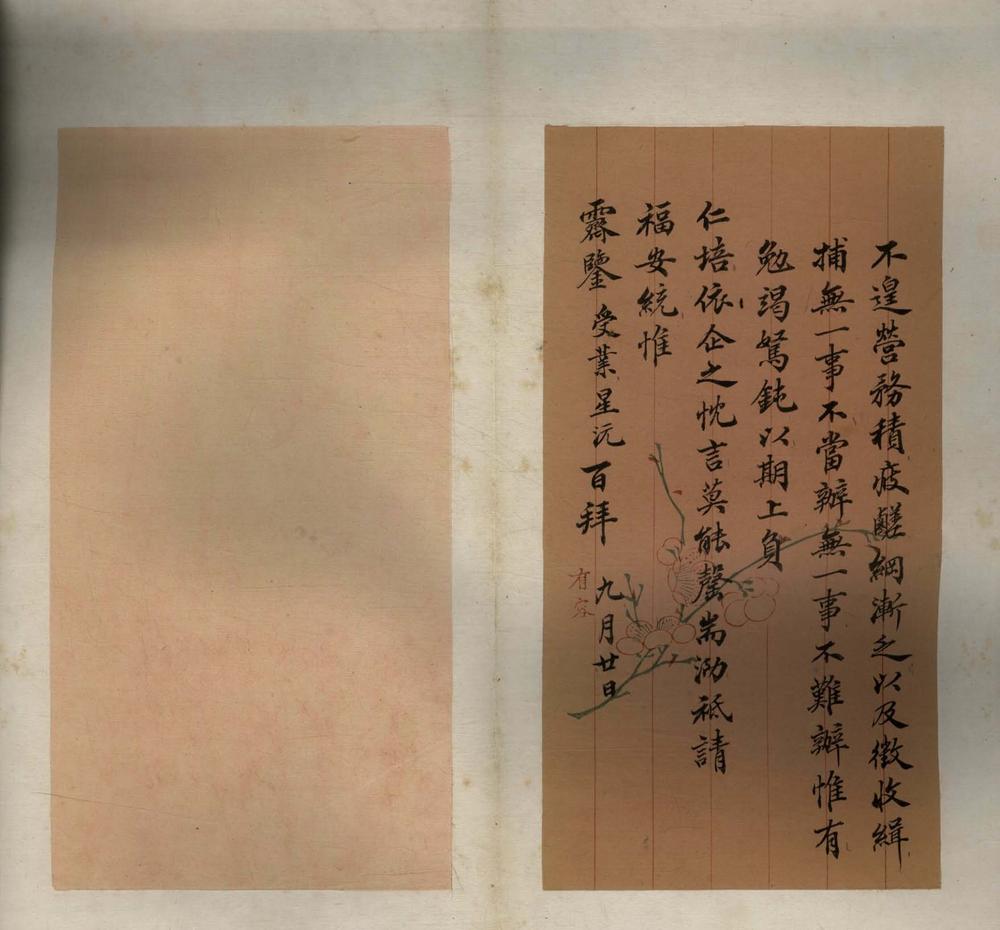 不遑營務積疲鹺綱漸乏以及徵收緝
捕無一事不當辦無一事不難辦惟有
勉竭駑鈍以期上負
仁培依企之忱言莫能罄耑泐祗請
福安統惟
霽鑒 受業星沅百拜 九月廿日
有容